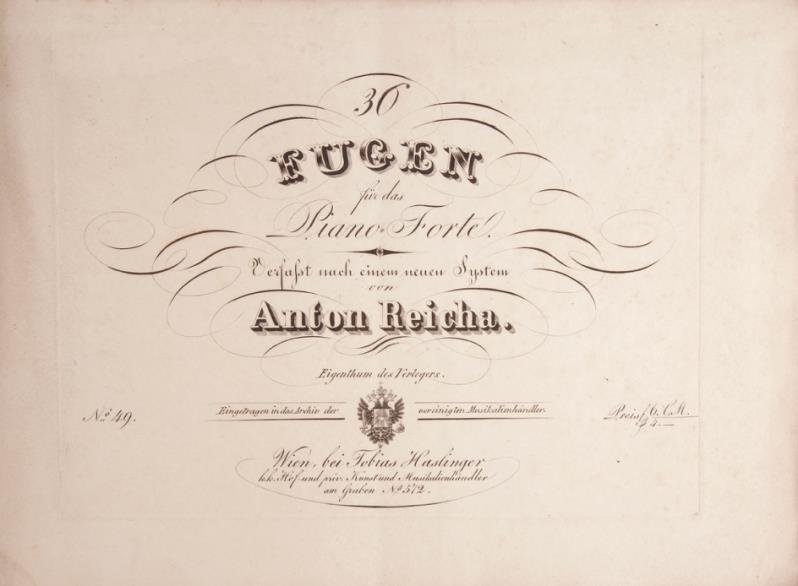 36
FUGEN
für das
Piano-Forte.
Verfaſst nach einem neuen System
von
Anton Reicha.
Eigenthum des Verlegers.
No. 49.
Eingetragen in das Archiv der vereinigten Musikalienhändler.
Preis f 6. C.M.
Wien, bei Tobias Haslinger
k.k. Hof- und priv. Kunst und Musikalienhändler
am Graben No. 572.